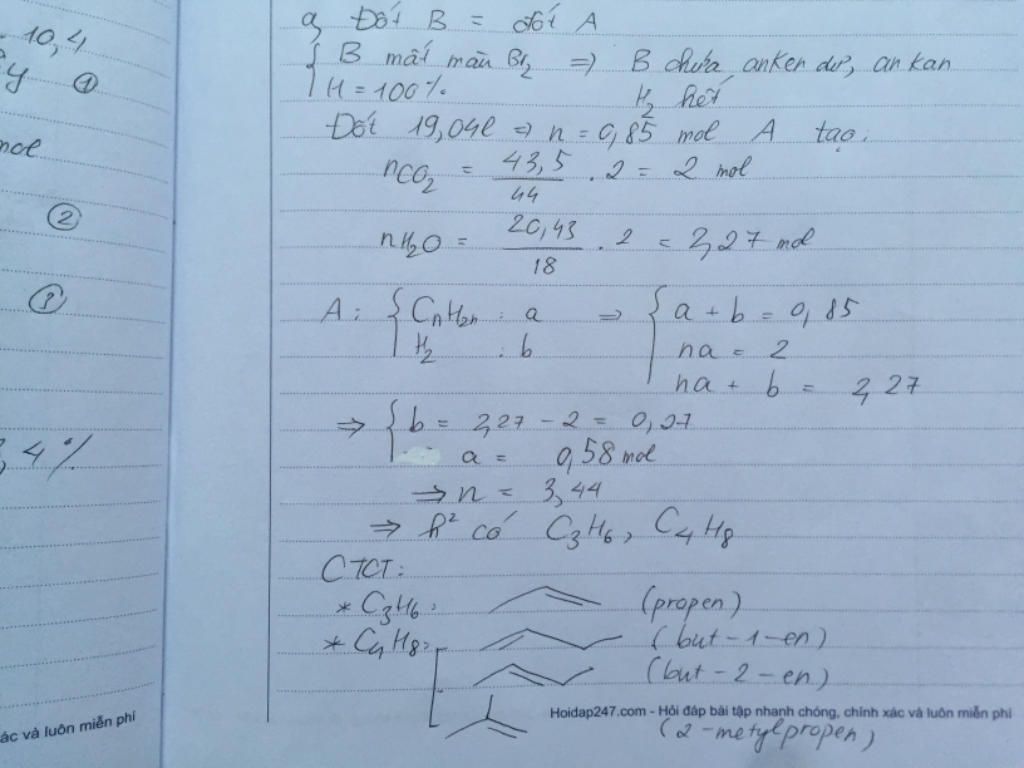 : 10,4
y ①
mol
②
③
,4%
ác và luôn miễn phí
a, Đốt B = đốt A
B mất màu Br2 => B chứa anken dư, ankan
H = 100% H2 hết
Đốt 19,04l => n = 0,85 mol A tạo:
nCO2 = 43,5/44 . 2 = 2 mol
nH2O = 20,43/18 . 2 = 2,27 mol
A: { CnH2n : a => { a + b = 0,85
H2 : b na = 2
na + b = 2,27
=> { b = 2,27 - 2 = 0,27
a = 0,58 mol
=> n = 3,44
=> h² có C3H6, C4H8
CTCT:
* C3H6: (propen)
* C4H8: (but-1-en)
(but-2-en)
Hoidap247.com - Hỏi đáp bài tập nhanh chóng, chính xác và luôn miễn phí
(2-metylpropen)